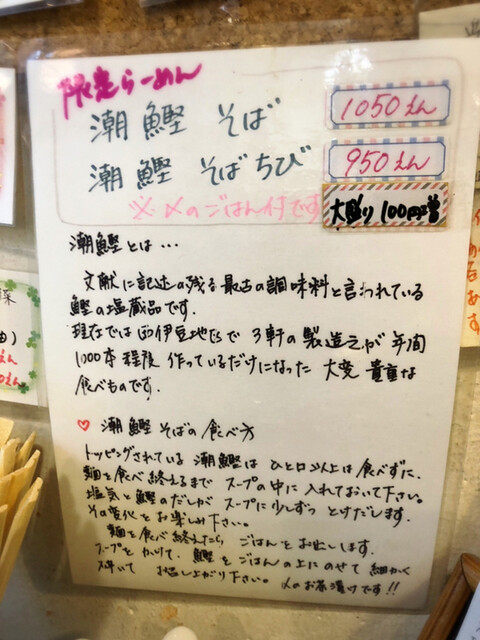 限定らーめん
潮鰹 そば 1050えん
潮鰹 そばちび 950えん
※〆のごはん付です 大盛り 100円増
潮鰹とは…
文献に記述の残る最古の調味料と言われている
鰹の塩蔵品です.
現在では西伊豆地方で 3軒の製造元が年間
1000本程度 作っているだけになった 大変 貴重な
食べものです.
♡ 潮鰹 そばの食べ方
トッピングされている 潮鰹は ひと口以上は食べずに、
麺を食べ終えるまで スープの中に入れておいて下さい。
塩気と鰹のだしが スープに少しずつ とけだします.
その変化を お楽しみ下さい。
麺を食べ終えたら ごはんをお出しします.
スープを かけて、鰹をごはんの上にのせて 細かく
砕いて お召し上がり下さい。〆のお茶漬けです!!